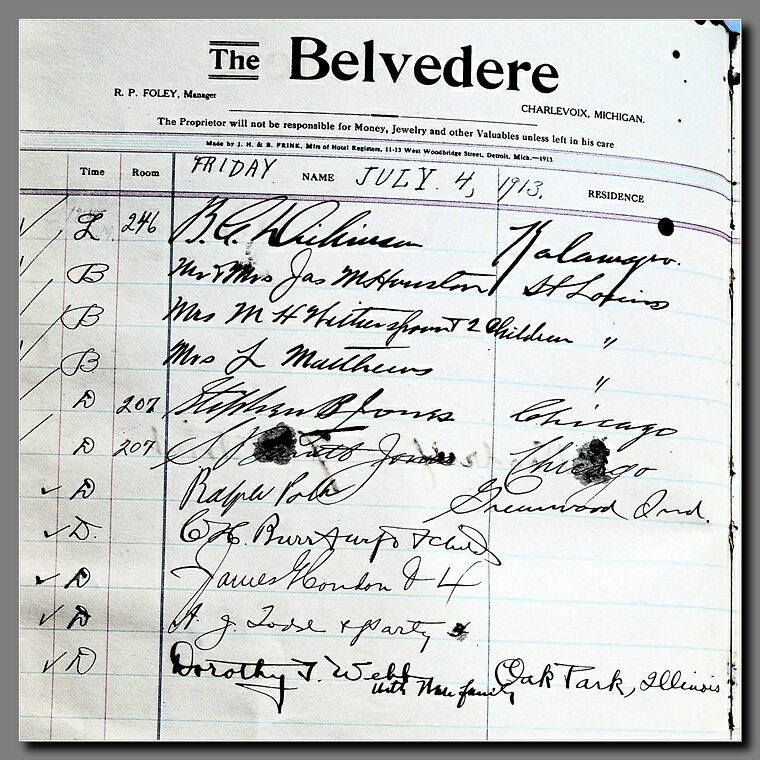 The Belvedere
R. P. FOLEY, Manager
CHARLEVOIX, MICHIGAN.
The Proprietor will not be responsible for Money, Jewelry and other Valuables unless left in his care
Made by J. H. & B. FRINK, Mfrs of Hotel Registers, 11-13 West Woodbridge Street, Detroit, Mich.—1913
Time Room FRIDAY NAME JULY 4, 1913. RESIDENCE
L 246 B. G. Dickinson Kalamazoo.
B Mr & Mrs Jas M Houston St Louis
B Mrs M H Witherspoon & 2 Children "
B Mrs L Matthews "
D 207 Stephen B Jones Chicago
D 207 S Jones Chicago
✓ D Ralph Polk Greenwood Ind.
✓ D. C. H. Burr & child
✓ D James & 4
✓ D A. J. Todd & party
✓ D Dorothy T. Webb Oak Park, Illinois
with family